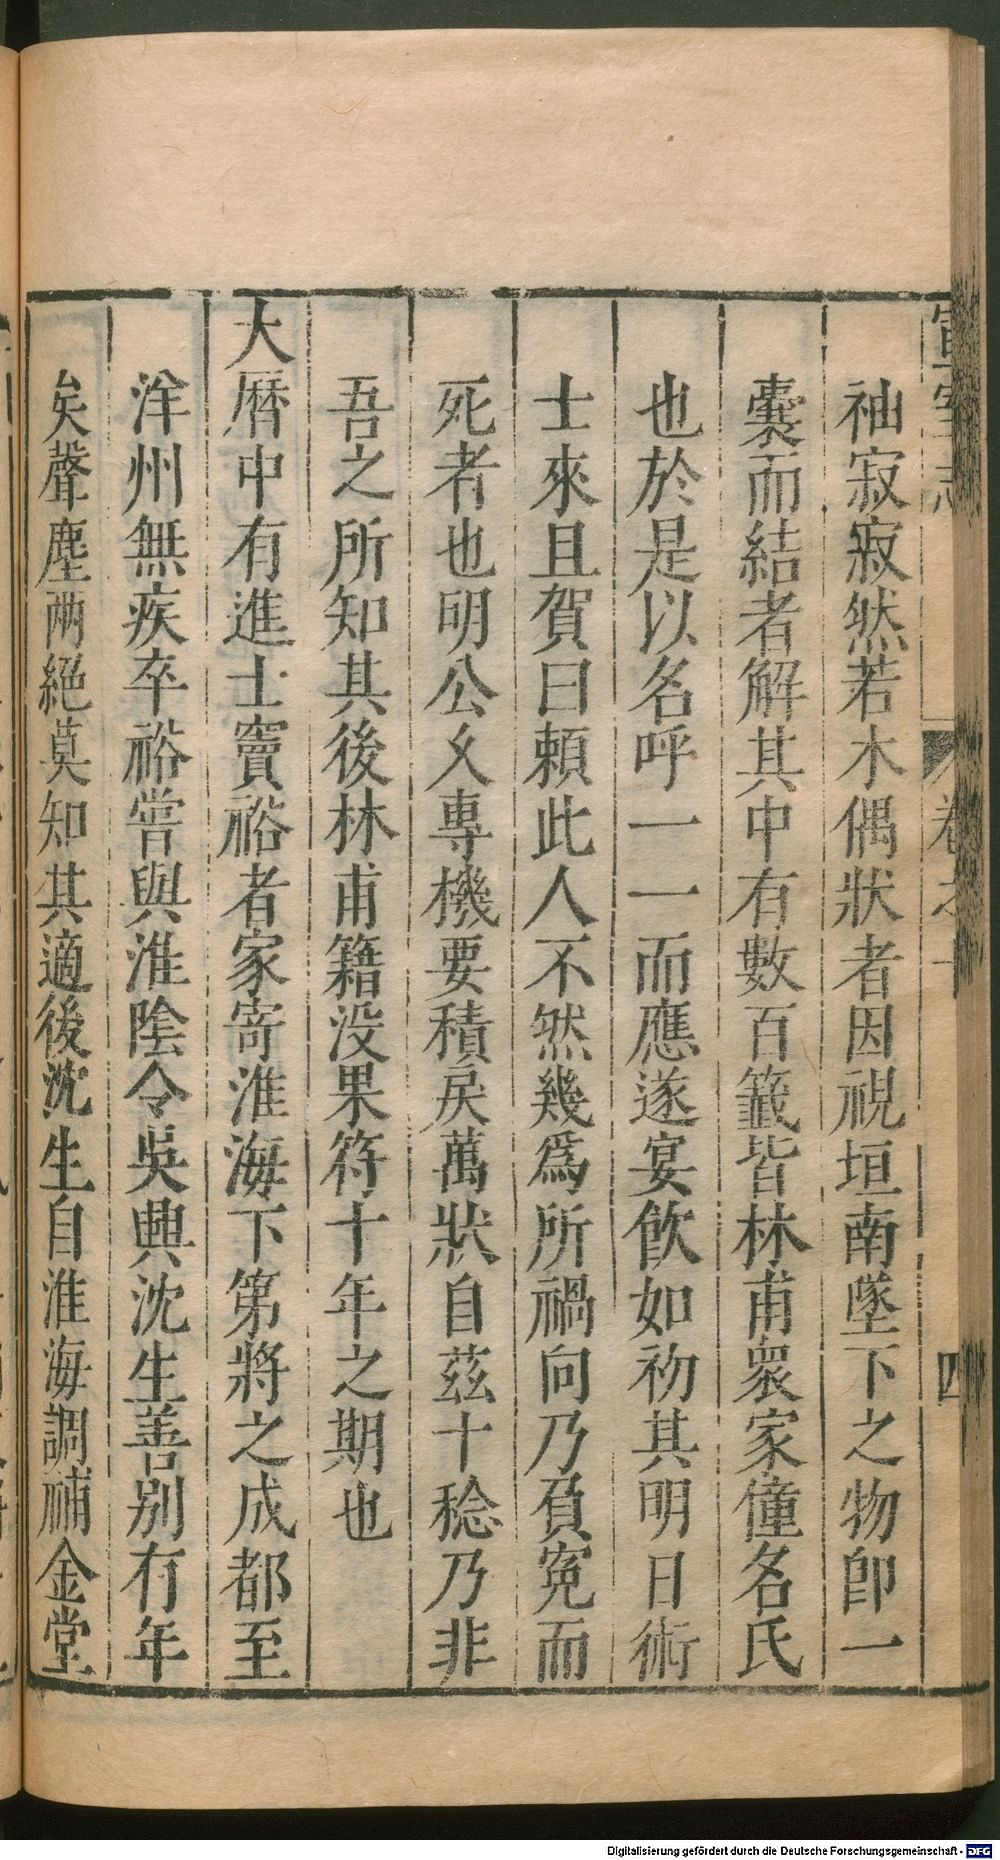 宣室志 卷之十 四
袖寂寂然若木偶狀者因視垣南墜下之物卽一
囊而結者解其中有數百籤皆林甫衆家僮名氏
也於是以名呼一一而應遂宴飮如初其明日術
士來且賀曰賴此人不然幾爲所禍向乃負冤而
死者也明公久專機要積戾萬狀自茲十稔乃非
吾之所知其後林甫籍没果符十年之期也
大曆中有進士竇裕者家寄淮海下第將之成都至
洋州無疾卒裕甞與淮陰令吳興沈生善别有年
矣聲塵兩絕莫知其適後沈生自淮海調補金堂
Digitalisierung gefördert durch die Deutsche Forschungsgemeinschaft - DFG